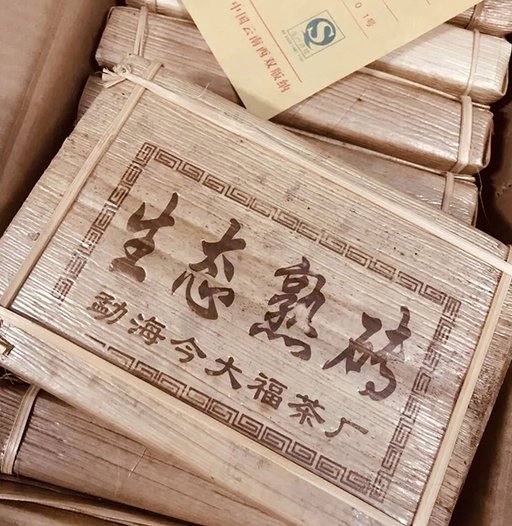 01号
中国云南西双版纳
生态熟砖
勐海今大福茶厂